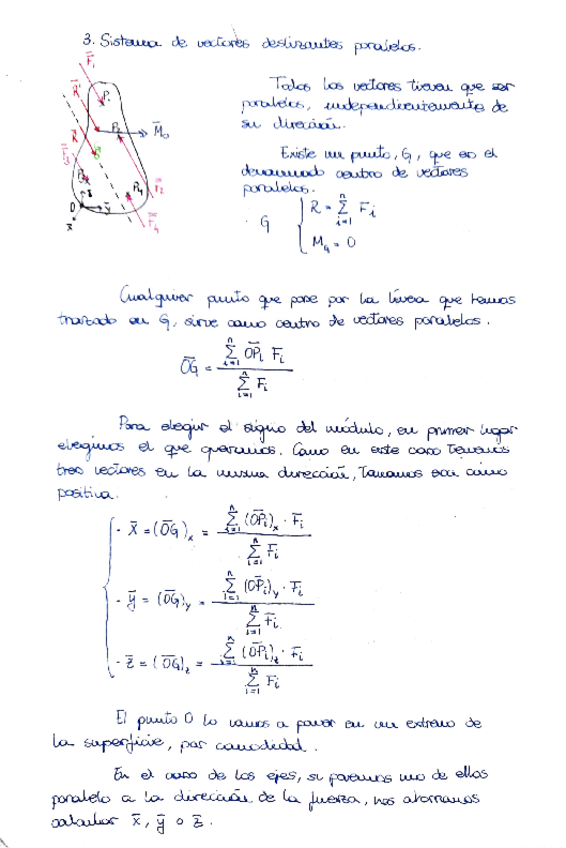 3. Sistema de vectores deslizantes paralelos.
Todos los vectores tienen que ser
paralelos, independientemente de
su dirección.
Existe un punto, G, que es el
denominado centro de vectores
paralelos.
F̄₁
P₁
R̄'
R̄
P₂
M̄₀
G
F̄₃
P₃
P₄
F̄₂
F̄₄
O
z̄
ȳ
x̄
· G { R = Σⁿᵢ₌₁ Fᵢ
M_G = 0
Cualquier punto que pase por la línea que hemos
trazado en G, sirve como centro de vectores paralelos.
ŌG = Σⁿᵢ₌₁ ŌPᵢ Fᵢ / Σⁿᵢ₌₁ Fᵢ
Para elegir el signo del módulo, en primer lugar
elegimos el que queramos. Como en este caso tenemos
tres vectores en la misma dirección, tomamos esa como
positiva.
- X̄ = (ŌG)ₓ = Σⁿᵢ₌₁ (ŌPᵢ)ₓ · F̄ᵢ / Σⁿᵢ₌₁ F̄ᵢ
- ȳ = (ŌG)y = Σⁿᵢ₌₁ (ŌPᵢ)y · Fᵢ / Σⁿᵢ₌₁ F̄ᵢ
- z̄ = (ŌG)z = Σⁿᵢ₌₁ (ŌPᵢ)z · Fᵢ / Σⁿᵢ₌₁ Fᵢ
El punto O lo vamos a poner en un extremo de
la superficie, por comodidad.
En el caso de los ejes, si ponemos uno de ellos
paralelo a la dirección de la fuerza, nos ahorramos
calcular x̄, ȳ o z̄.